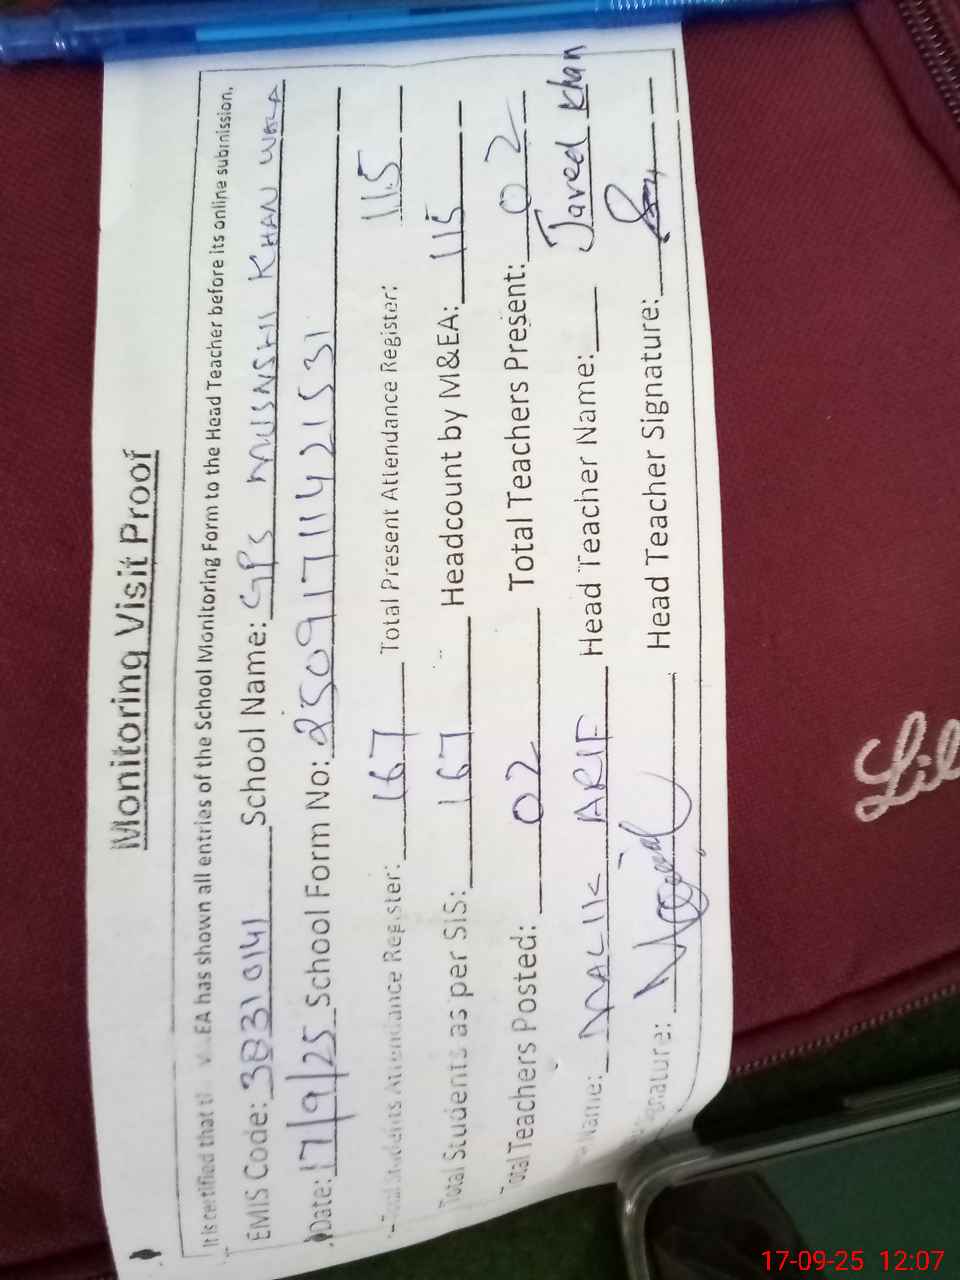 Monitoring Visit Proof
It is certified that EA has shown all entries of the School Monitoring Form to the Head Teacher before its online submission.
EMIS Code: 38310141 School Name: GPS MUSNSHI KHAN WALA
Date: 17/9/25 School Form No: 25091711421531
Total Students Attendance Register: 167 Total Present Attendance Register: 115
Total Students as per SIS: 167 Headcount by M&EA: 115
Total Teachers Posted: 02 Total Teachers Present: 02
Name: MALIK ARIF Head Teacher Name: Javed Khan
Signature: Head Teacher Signature:
Lil
17-09-25 12:07